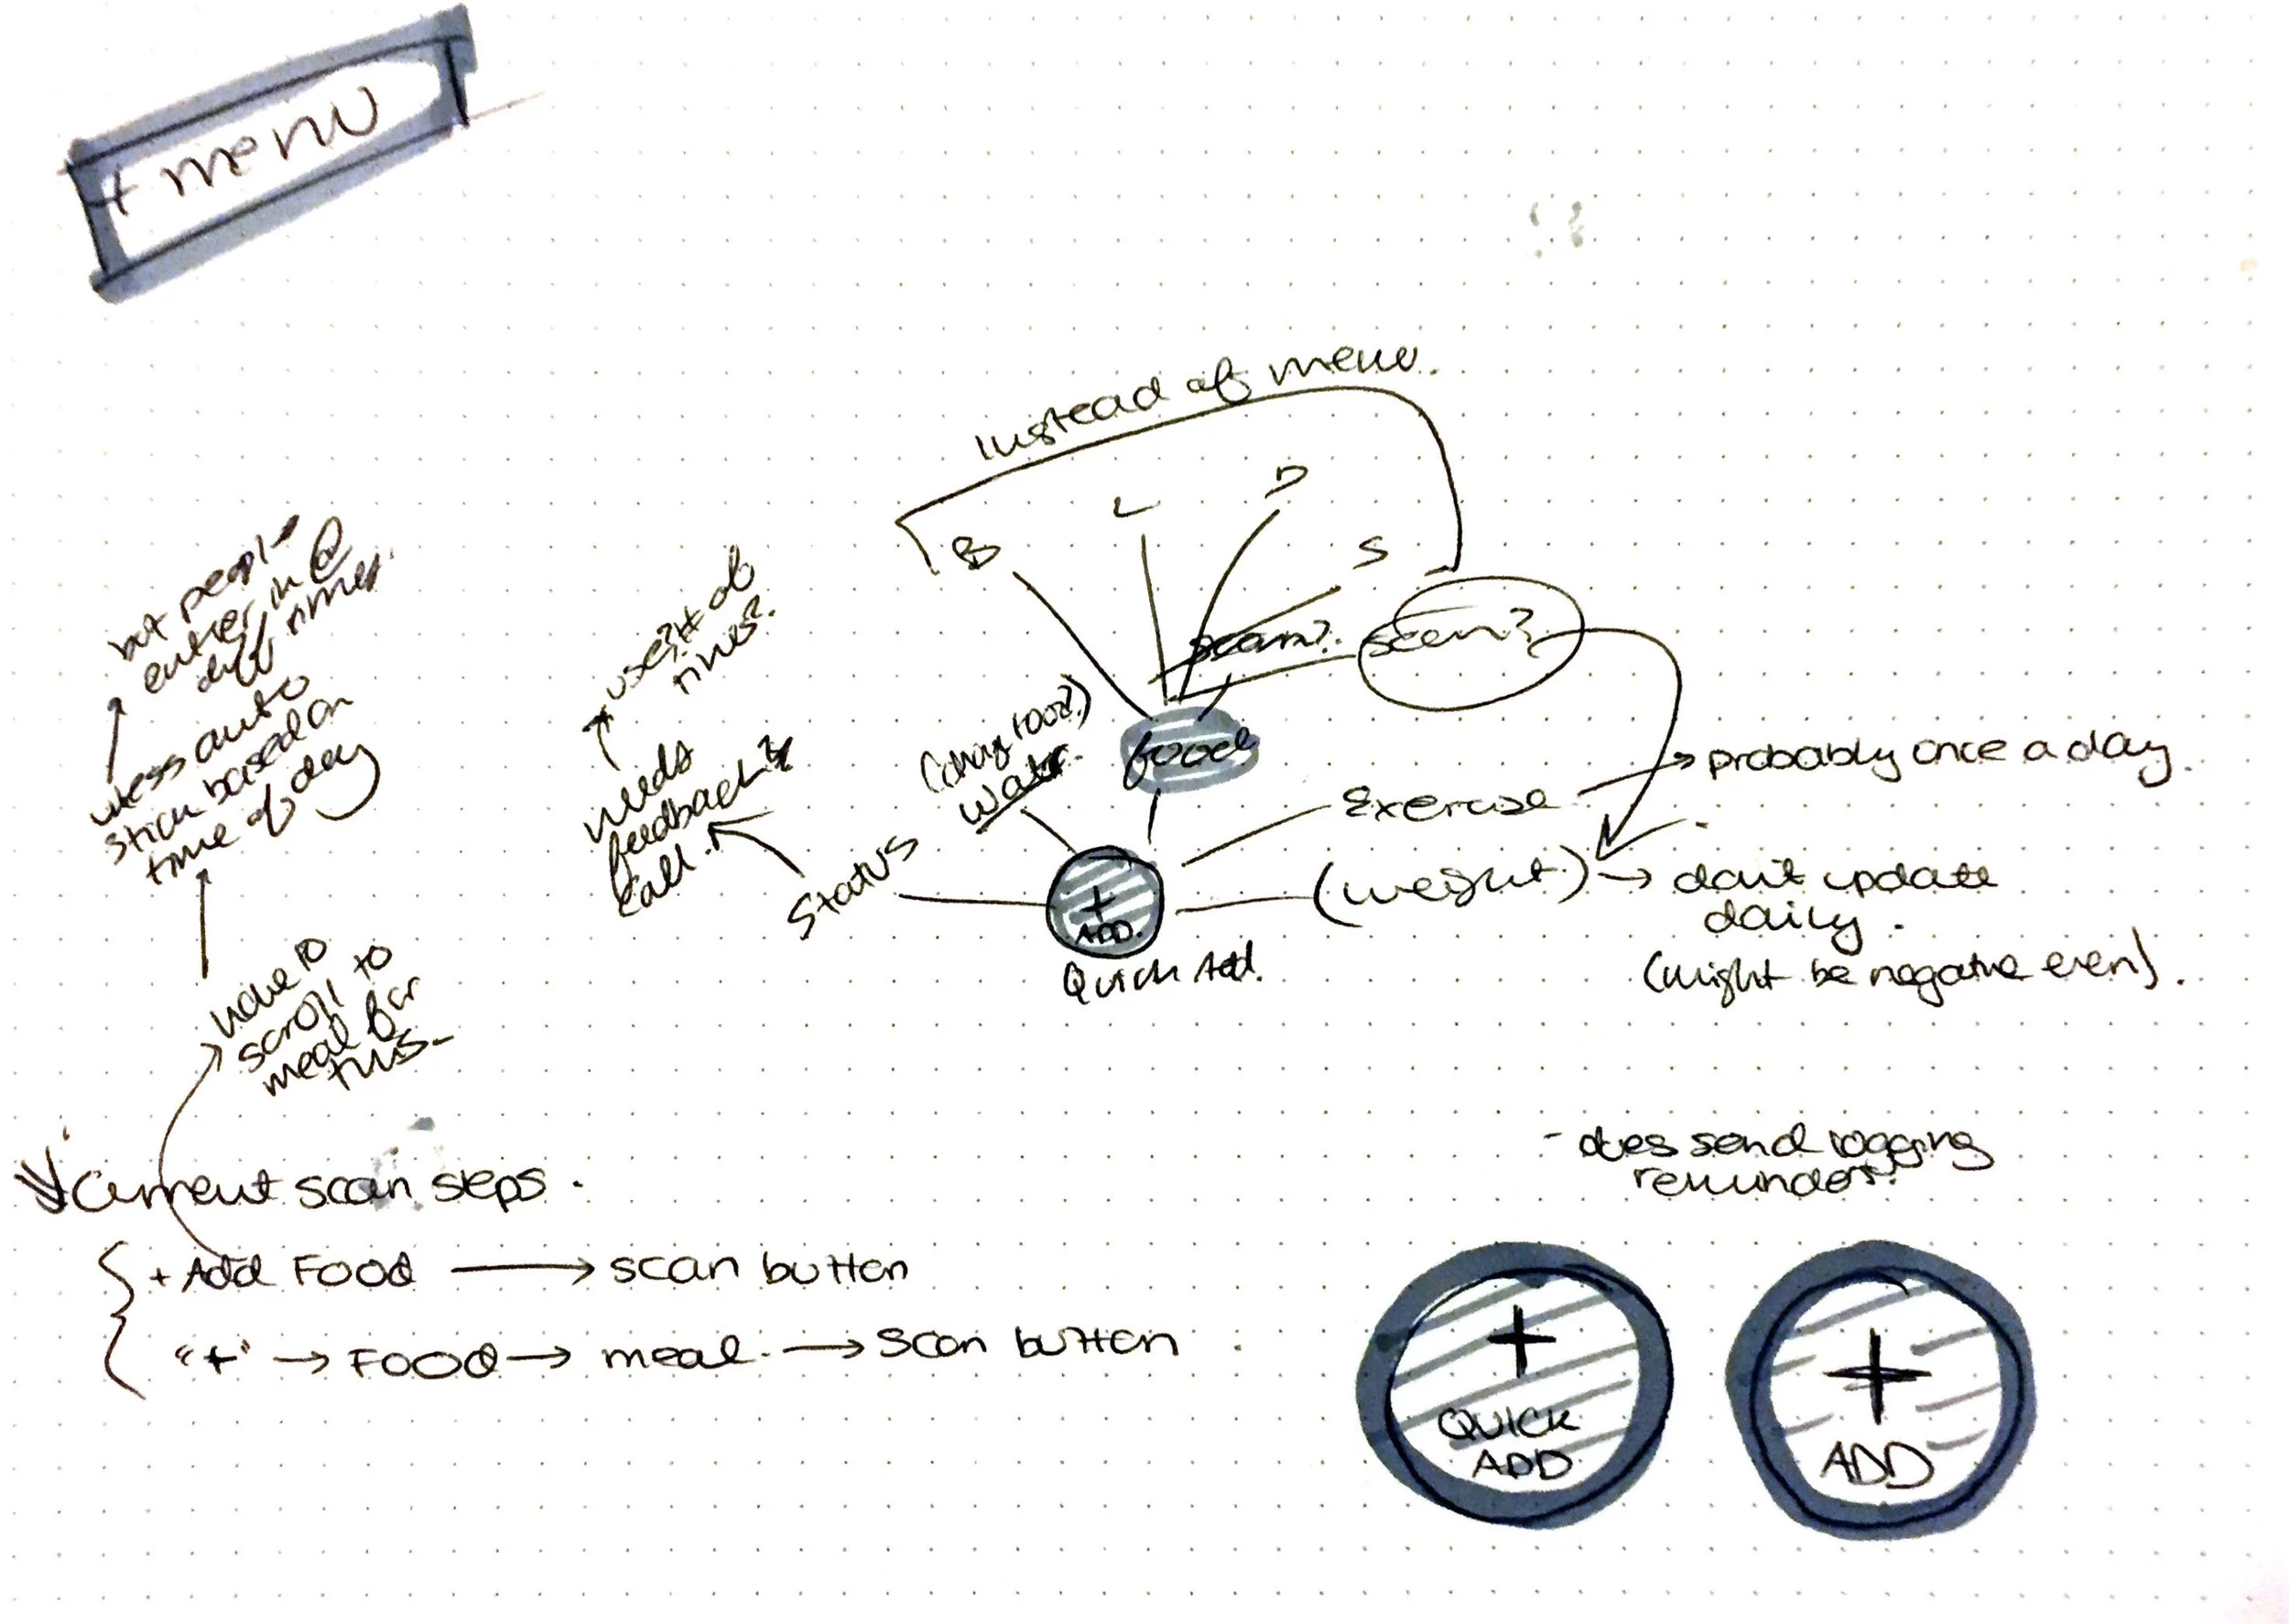 + menu
Instead of menu.
B
L
D
S
scan?.
scan?
food
(drag food?)
water.
Exercise
probably once a day.
(weight)
don't update
daily.
(might be negative even).
Status
+
ADD.
Quick Add.
use? # of
times?
needs
feedback?
call.
but people
enter in @
diff times.
unless auto
stick based on
time of day
have to
scroll to
meal for
this-
Current scan steps.
+ Add Food → scan button
"+" → Food → meal. → scan button
- does send logging
reminders.
+
QUICK
ADD
+
ADD